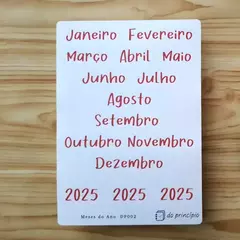 Janeiro Fevereiro
Março Abril Maio
Junho Julho
Agosto
Setembro
Outubro Novembro
Dezembro
2025 2025 2025
Meses do Ano 09002 do princípio